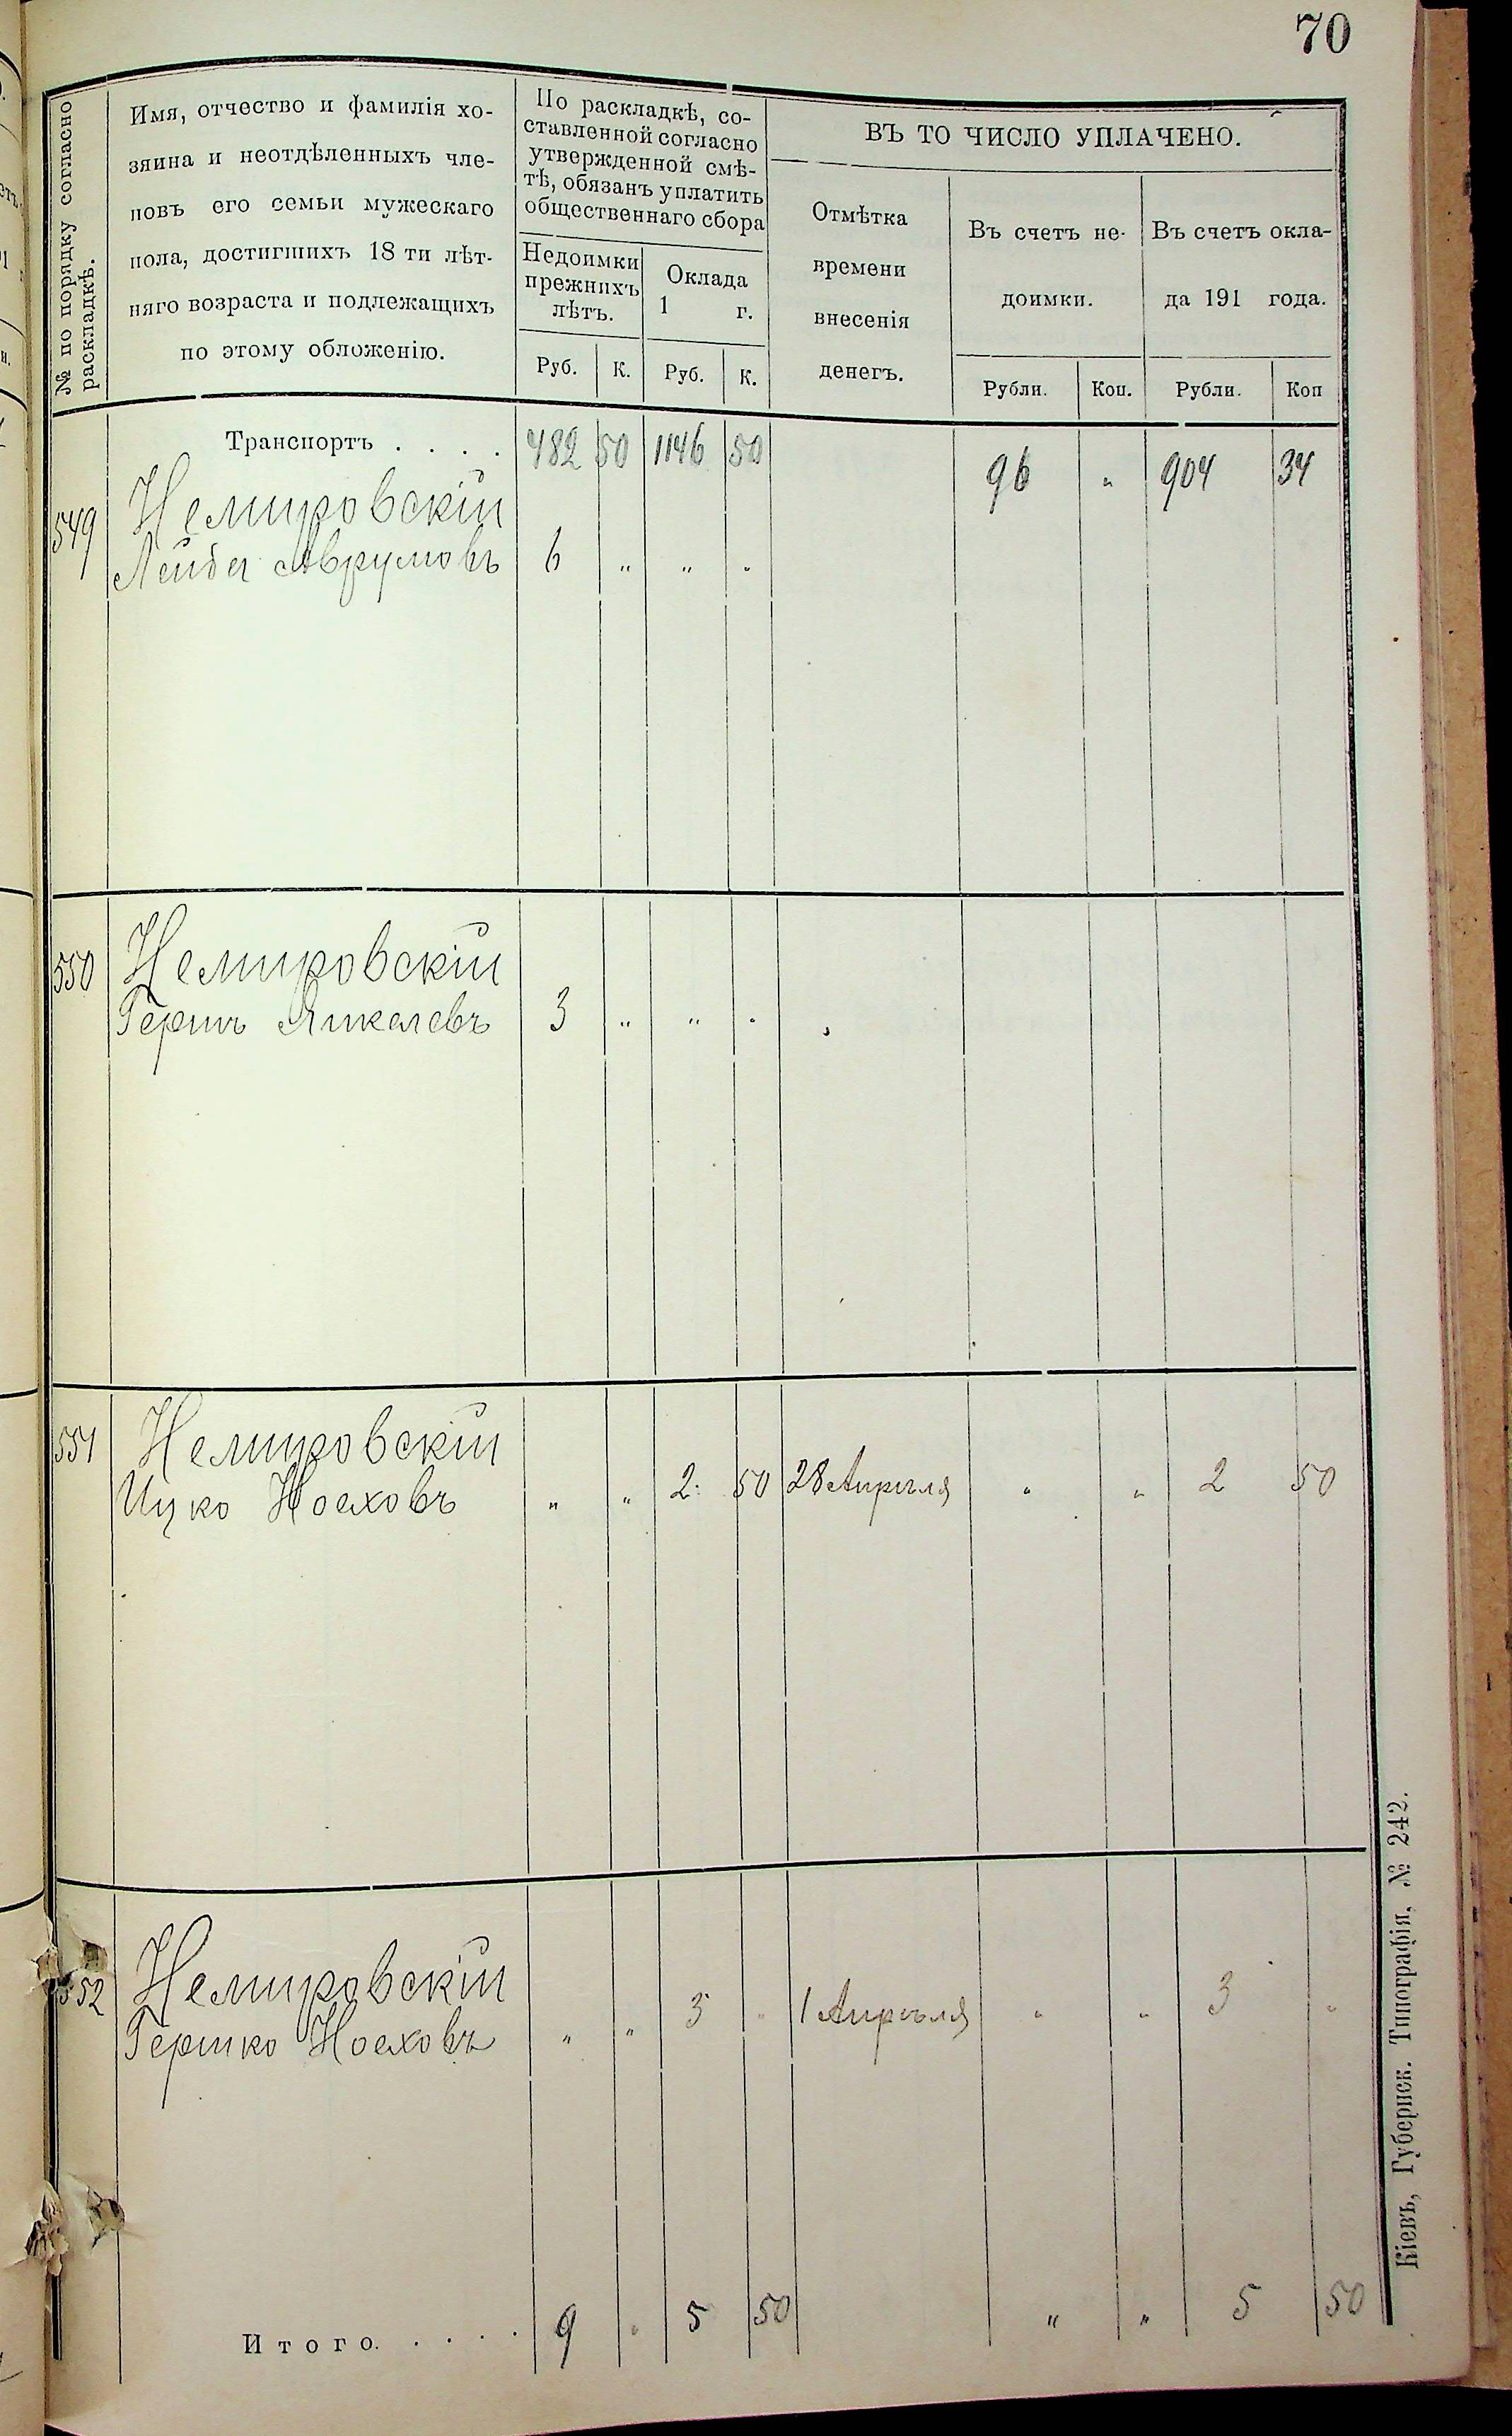 70
№ по порядку согласно
раскладкѣ.
Имя, отчество и фамилія хо-
зяина и неотдѣленныхъ чле-
новъ его семьи мужескаго
пола, достигшихъ 18 ти лѣт-
няго возраста и подлежащихъ
по этому обложенію.
По раскладкѣ, со-
ставленной согласно
утвержденной смѣ-
тѣ, обязанъ уплатить
общественнаго сбора
Недоимки
прежнихъ
лѣтъ.
Оклада
1 г.
Руб. К. Руб. К.
ВЪ ТО ЧИСЛО УПЛАЧЕНО.
Отмѣтка
времени
внесенія
денегъ.
Въ счетъ не-
доимки.
Въ счетъ окла-
да 191 года.
Рубли. Коп. Рубли. Коп
Транспортъ . . . . 482 50 1146 50 96 " 904 34
549 Немировскій
Лейба Аврумовъ 6 " " "
550 Немировскій
Гершъ Янкелевъ 3 " " "
551 Немировскій
Ицко Ноеховъ " " 2 50 28 Апрѣля " " 2 50
552 Немировскій
Гершко Ноеховъ " " 3 " 1 Апрѣля " " 3 "
Итого. . . . . 9 " 5 50 " " 5 50
Кіевъ, Губернск. Типографія, № 242.